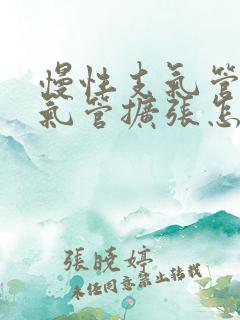 慢性支氣管
氣管擴張怎
張曉婷
未经同意禁止转载